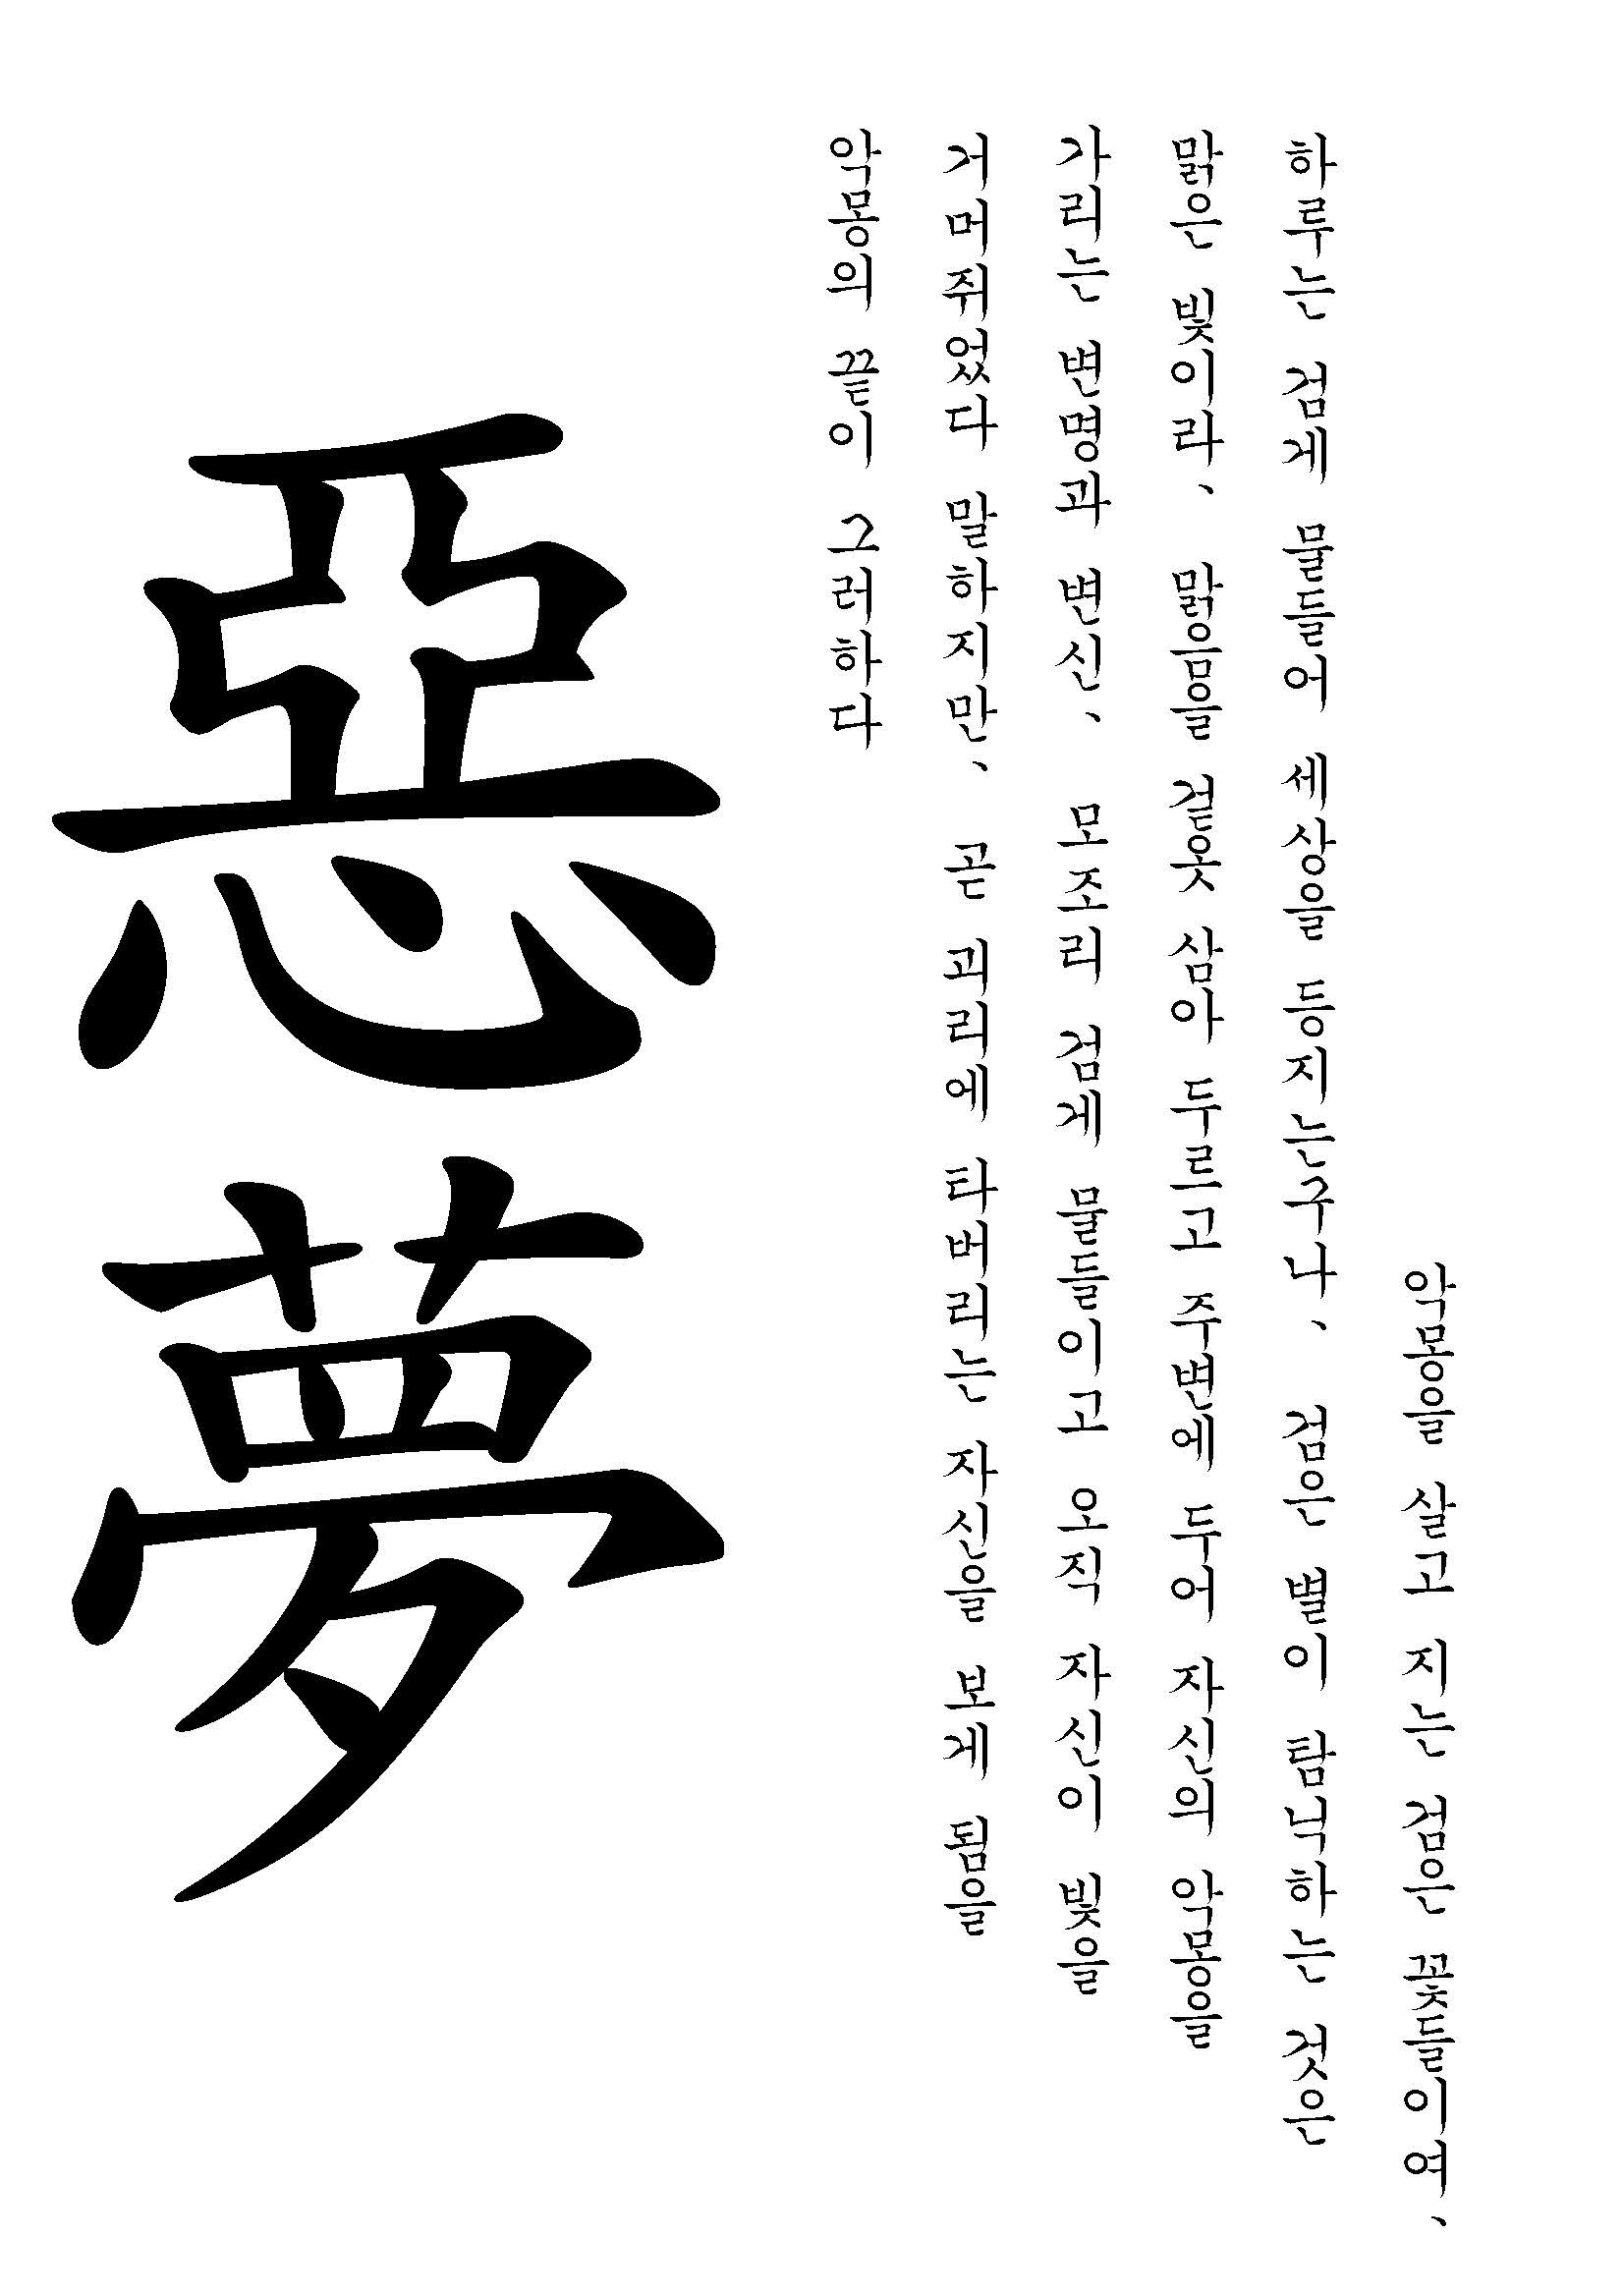 악몽을 살고 지는 검은 꽃들이여、
하루는 검게 물들어 세상을 등지는구나、 검은 별이 탐닉하는 것은
맑은 빛이라、 맑음을 겉옷 삼아 두르고 주변에 두어 자신의 악몽을
가리는 변명과 변신、 모조리 검게 물들이고 오직 자신이 빛을
거머쥐었다 말하지만、 곧 괴리에 타버리는 자신을 보게 됨을
악몽의 끝이 그러하다
惡夢